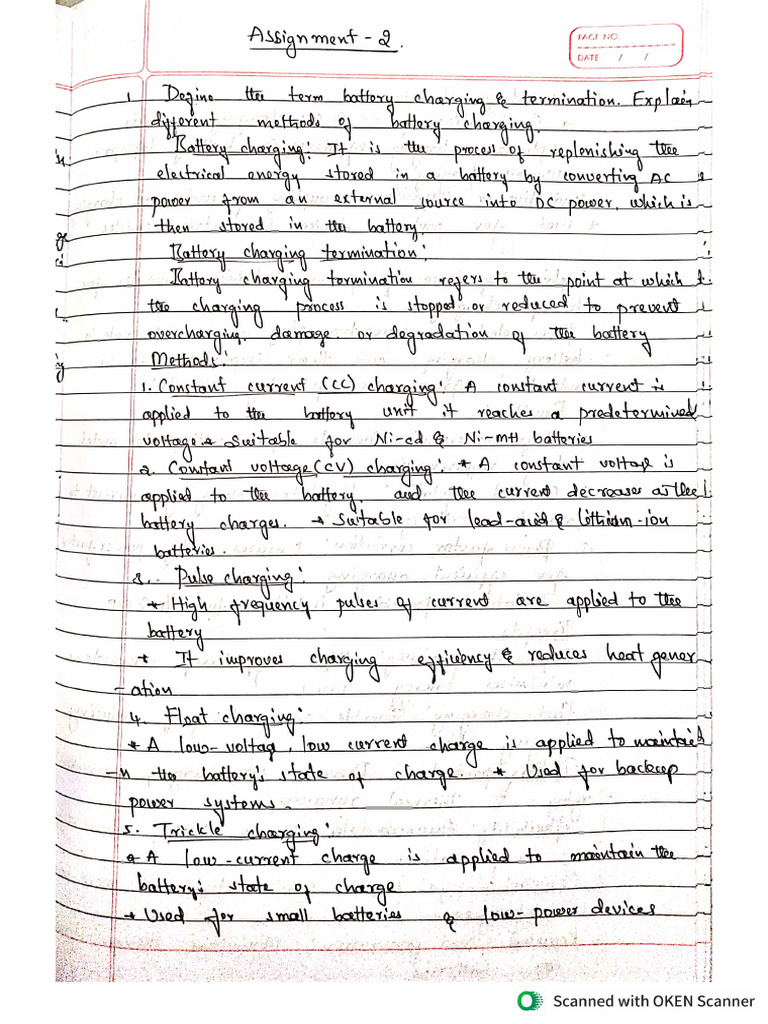 Assignment - 2.
PAGE NO.
DATE / /
1. Define the term battery charging & termination. Explain
different methods of battery charging.
Battery charging: It is the process of replenishing the
electrical energy stored in a battery by converting AC
power from an external source into DC power, which is
then stored in the battery.
Battery charging termination:
Battery charging termination refers to the point at which
the charging process is stopped or reduced to prevent
overcharging, damage or degradation of the battery
Methods:
1. Constant current (CC) charging: A constant current is
applied to the battery unit it reaches a predetermined
voltage. * Suitable for Ni-cd & Ni-MH batteries
2. Constant voltage (CV) charging: * A constant voltage is
applied to the battery, and the current decreases as the
battery charges. * Suitable for lead-acid & lithium-ion
batteries.
3. Pulse charging:
* High frequency pulses of current are applied to the
battery
* It improves charging efficiency & reduces heat gener
-ation
4. Float charging:
* A low-voltage, low current charge is applied to maintai
-n the battery's state of charge. * Used for backup
power systems.
5. Trickle charging:
* A low-current charge is applied to maintain the
battery's state of charge
* Used for small batteries & low-power devices
Scanned with OKEN Scanner